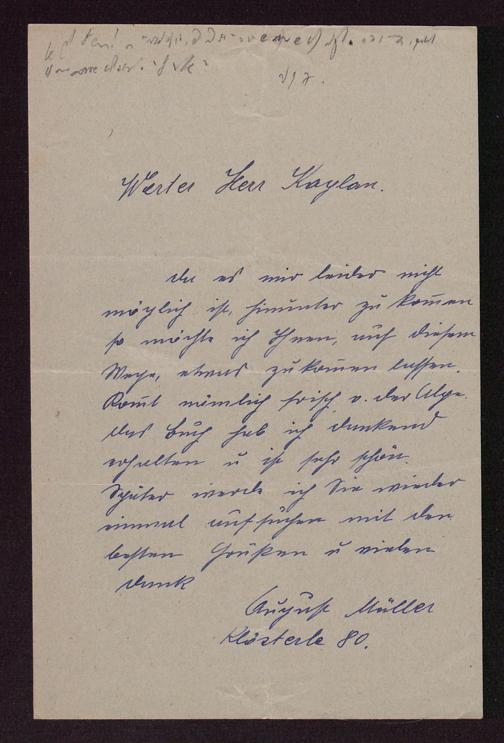 Werter Herr Kaplan.
da es mir leider nicht
möglich ist, hinunter zu kom̄en
so möchte ich Ihnen, auf diesem
Wege, etwas zukom̄en lassen.
Kom̄t nämlich frisch v. der Alpe.
das Buch hab ich dankend
erhalten u ist sehr schön
Später werde ich Sie wieder
einmal aufsuchen mit den
besten Grüßen u vielen
dank
August Müller
Klösterle 80.